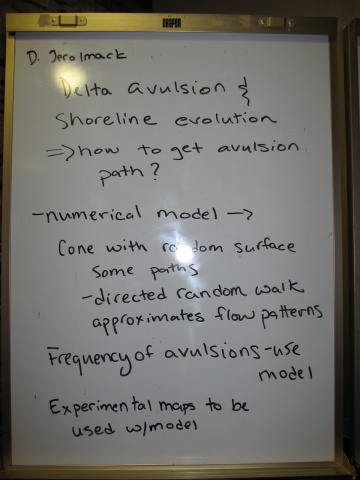 DRAPER
D. Jerolmack
Delta avulsion &
Shoreline evolution
=> how to get avulsion
path?
-numerical model ->
Cone with random surface
some paths
-directed random walk
approximates flow patterns
Frequency of avulsions-use
model
Experimental maps to be
used w/model